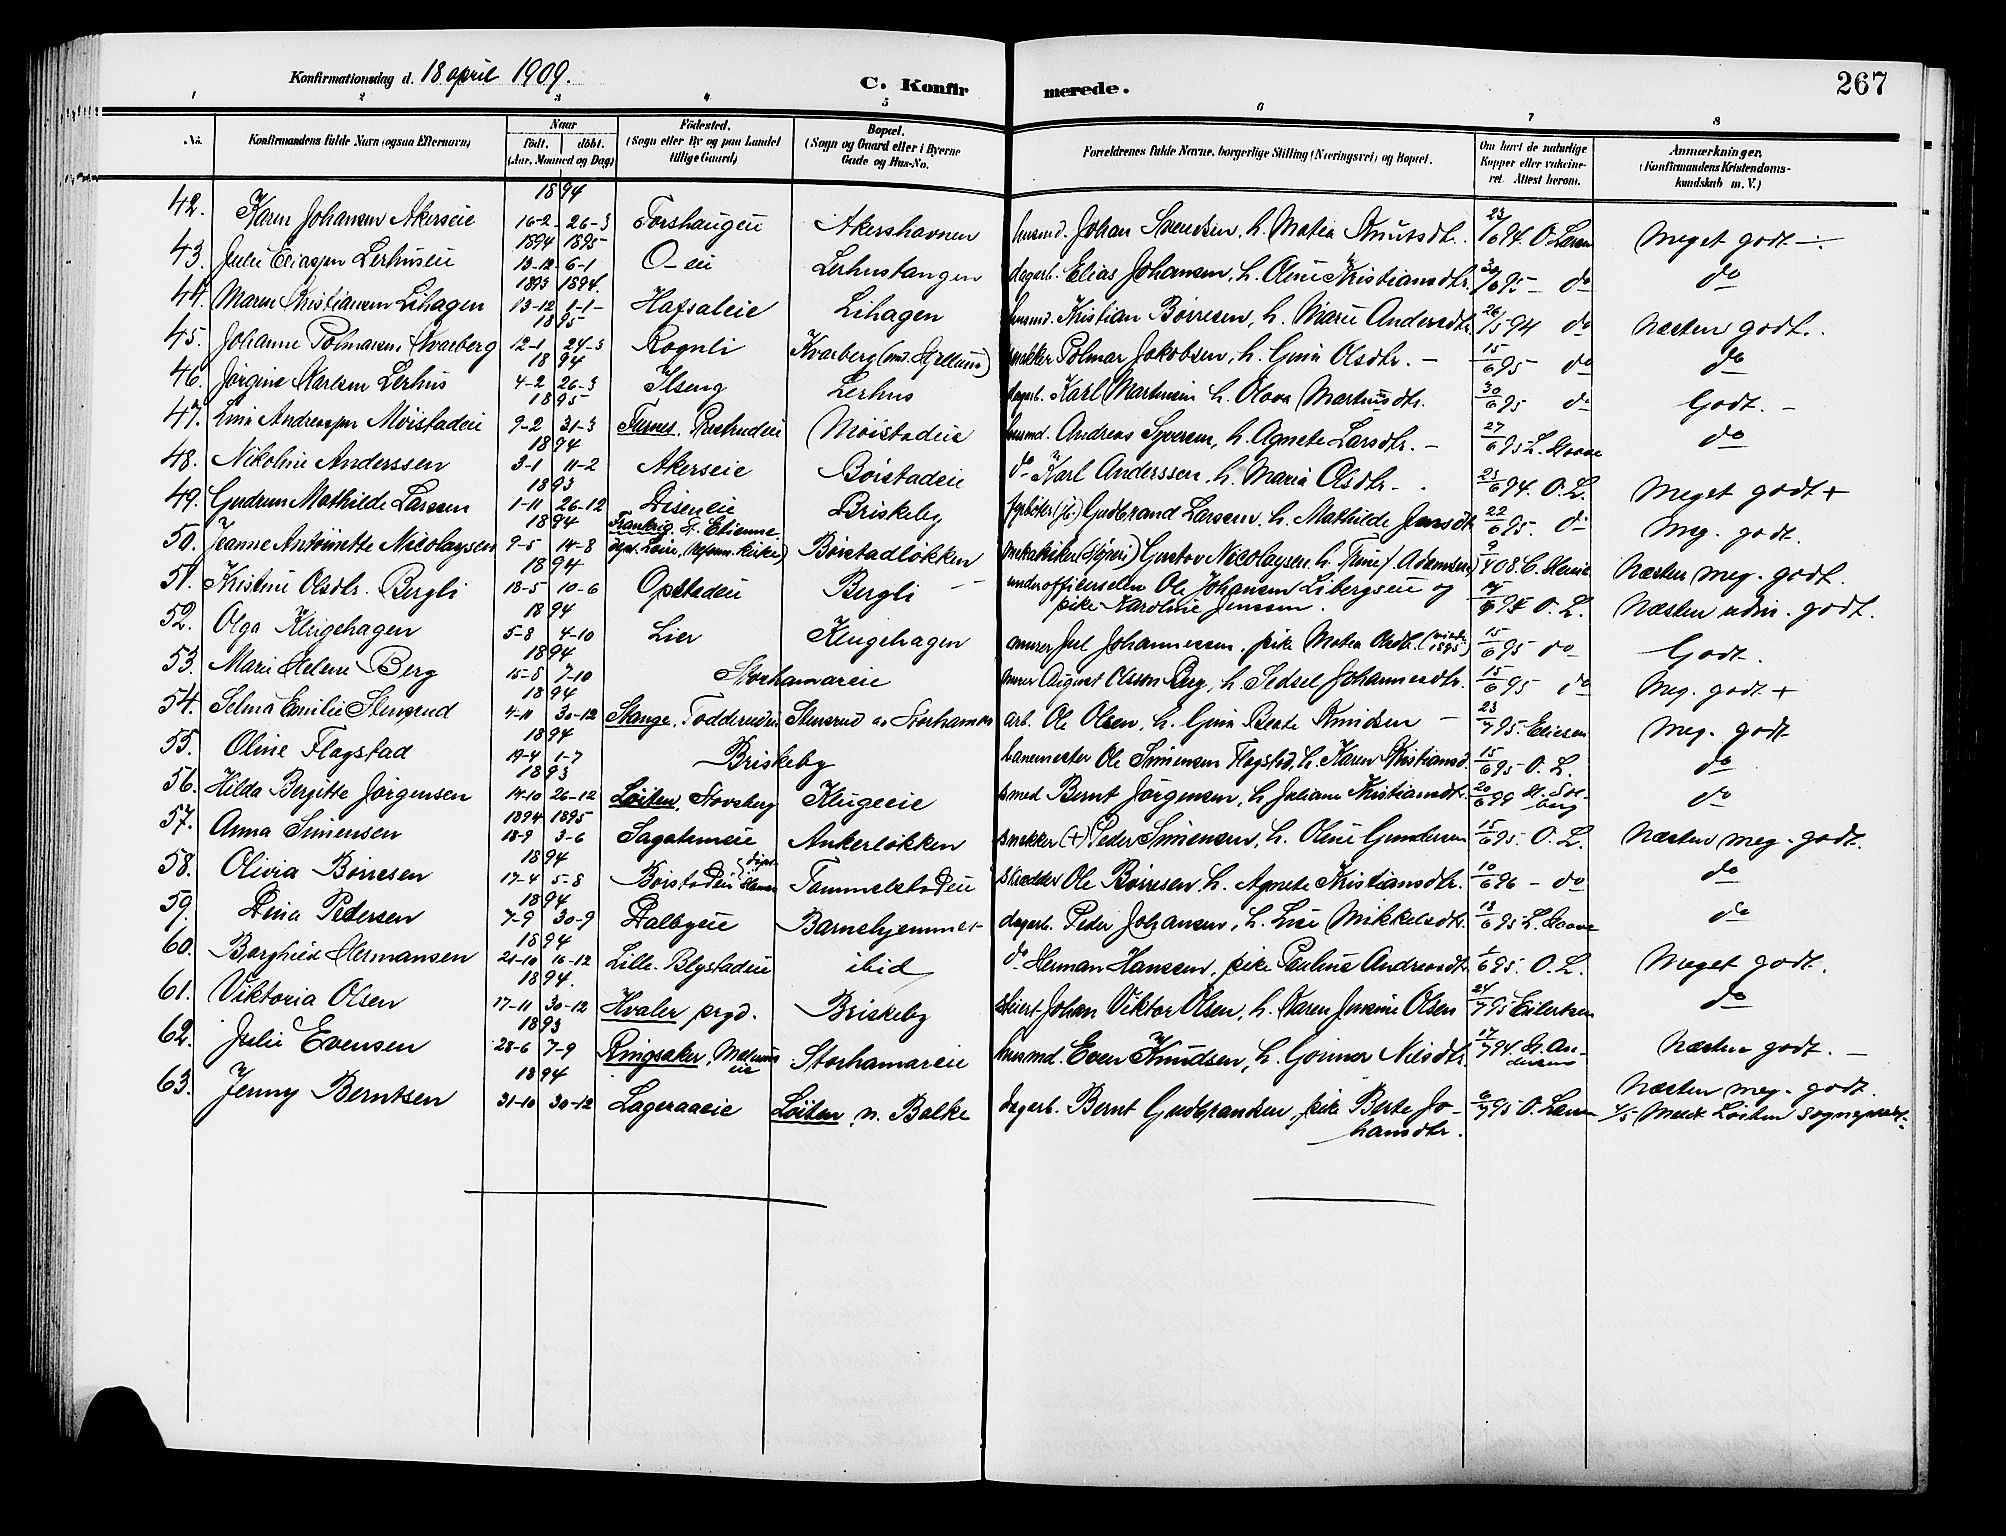 Konfirmationsdag d. 18 april 1909.
C. Konfirmerede.
267
1 2 3 4 5 6 7 8
No. Konfirmandens fulde Navn (ogsaa Efternavn) Naar født. døbt. (Aar, Maaned og Dag) Fødested. (Sogn eller By og paa Landet tillige Gaard) Bopæl. (Sogn og Gaard eller i Byerne Gade og Hus-No. Forældrenes fulde Navne, borgerlige Stilling (Næringsvei) og Bopæl. Om havt de naturlige Kopper eller vakcineret. Attest herom. Anmærkninger, (Konfirmandens Kristendomskundskab m. V.)
42. Karen Johansen Akerseie 1894 16-2 26-3 Forshaugeie Akershavnen husmd. Johan Svendsen, h. Matea Knutsdtr. 23/6 94. O. Larsen Meget godt
43. Julie Eliassen Lerhuseie 1894 1895 13-12 6-1 O-eie Lerhustangen dagarb. Elias Johansen, h. Oline Kristiansdtr. 30/6 95 do do
44. Maren Kristiansen Lihagen 1893 1894. 13-12 1-1 Hafsaleie Lihagen husmd. Kristian Børresen, h. Marie Andersdtr. 26/5 94 do Næsten godt.
45. Johanne Polmarsen Kvarberg 1895 12-1 24-3 Rognli Kvarberg snekker Polmar Jakobsen, h. Gina Olsdtr. 15/6 95 do do
46. Jørgine Karlsen Lerhus 1894 4-2 26-3 Ilseng Lerhus dagarb. Karl Martinsen h. Olava Martinusdtr. 30/6 95 do Godt.
47. Lina Andreassen Møistadeie 1895 9-2 31-3 Furnes. Møistadeie husmd. Andreas Syversen, h. Agnete Larsdtr. 27/6 95 L. Moove do
48. Nikoline Anderssen 1894 3-1 11-2 Akerseie Børstadeie do Karl Anderssen, h. Maria Olsdtr. 23/6 94. O. L. Meget godt +
49. Gudrun Mathilde Larsen 1893 1-11 26-12 Diseneie Briskeby fyrbøter Gudbrand Larsen, h. Mathilde Jensdtr. 22/6 95. do Meg. godt.
50. Jeanne Antoinette Nicolaysen 1894 9-5 14-8 Frankrig, St. Etienne dept. Loire, Børstadløkken Gustav Nicolaysen, h. 9/4 08. Næsten meg. godt.
51. Kristine Olsdtr. Bergli 1894 18-5 10-6 Opstadeie Bergli underofficerselev Ole Johansen Libergseie og pike Karoline Jensen. O. L. Næsten udm. godt.
52. Olga Klugehagen 1894 5-8 4-10 Lier Klugehagen murer Juel Johannessen, pike Matea Olsdtr. 15/6 95 do Godt.
53. Mari Helene Berg 1894 15-8 7-10 Storhamareie murer August Olsson Berg, h. Sidsel Johannesdtr. 15/6 95 do Meg. godt +
54. Selma Emilie Stensrud 1894 4-11 30-12 Stange, Todderudeie Stensrud av Storhamar arb. Ole Olsen, h. Gina Beate Knudsen 23/7 95. Eliesen Meg. godt
55. Oline Flagstad 1894 19-4 1-7 Briskeby banemester Ole Simensen Flagstad, h. Karen Kristiansd. 15/6 95 O. L. do
56. Hilda Bergitte Jørgensen 1893 14-10 26-12 Løiten, Stovberg Klugeeie smed Bernt Jørgensen, h. Juliane Kristiansdtr. 20/6 99 do
57. Anna Simensen 1894 1895 18-9 3-6 Sagatuneie Ankerløkken snekker (+) Peder Simensen, h. Oline Gundersen 15/6 95. O. L. Næsten meg. godt.
58. Olivia Børresen 1894 17-4 5-8 Børstadeie Tommelstadeie skrædder Ole Børresen, h. Agnete Kristiansdtr. 10/6 96 do do
59. Dina Petersen 1894 7-9 30-9 Dalbyeie Barnehjemmet dagarb. Peder Johansen, h. Lise Mikkelsdtr. 18/6 95 L. Moove do
60. Borghild Hermansen 1894 21-10 16-12 Lille-Blystadeie ibid do Herman Hanssen, pike Pauline Andreasdtr. 1/6 95. O. L. Meget godt.
61. Viktoria Olsen 1894. 17-11 30-12 Hvaler prgd. Briskeby Johan Viktor Olsen, h. Karen Jensine Olsen 24/7 95 Eilertsen do
62. Julie Evensen 1893 28-6 7-9 Ringsaker, Storhamareie husmd. Even Knudsen, h. Gorine Nilsdtr. 17/7 94. Næsten godt.
63. Jenny Berntsen 1894 31-10 30-12 Lageraaeie Løiten, n. Balke dagarb. Bernt Gudbrandsen, pike Berte Johansdtr. 6/7 95 O. Larsen Næsten meg. godt. 4/5 Meldt Løiten sogneprest